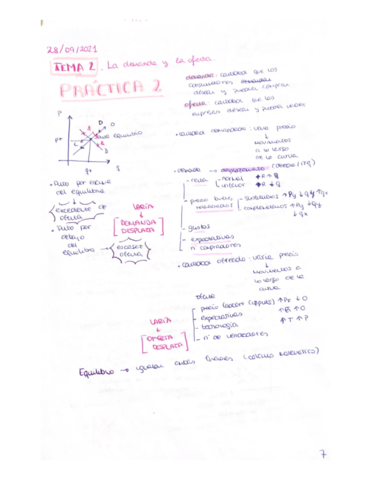 28/09/2021
TEMA 2. La demanda y la oferta
PRÁCTICA 2
demanda: cantidad que los
consumidores
desean y pueden comprar
oferta: cantidad que las
empresas desean y pueden vender
P
D
O
P*
equilibrio
q*
q
• cantidad demandada: varía precio
↓
movimientos
a lo largo
de la curva
• Punto por encima
del equilibrio
↓
excedente de
oferta
• Punto por
debajo
del
equilibrio →
VARÍA
↓
DEMANDA
DESPLAZA
• demanda →
- renta
normal ↑R ↑Q
inferior ↑R ↓Q
- precio bienes
relacionados
sustitutivos
complementarios
- gustos
- expectativas
- nº compradores
• cantidad ofrecida: varía precio
↓
movimientos a
lo largo de la
curva
VARÍA
↓
OFERTA
DESPLAZA
oferta
- precio factores (inputs) ↑Pf ↓O
- expectativas
- tecnología ↑T ↑P
- nº de vendedores
Equilibrio → igualar ambas funciones (cálculo matemático)
7